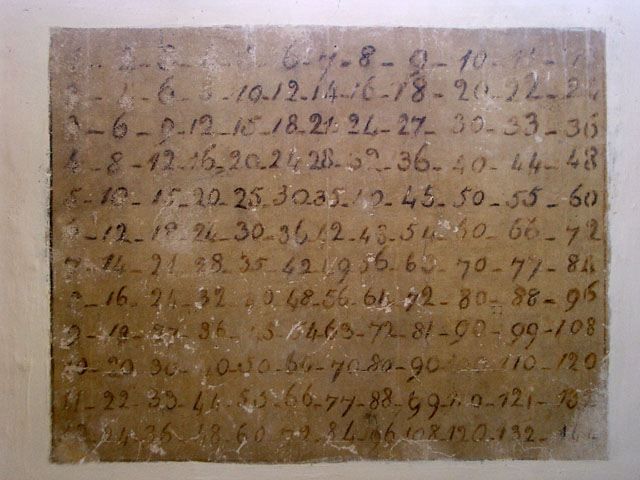 2 - 3 - 6 - 7 - 8 - 9 - 10 - 11
6 - 10 - 12 - 14 - 16 - 18 - 20 - 22 - 24
3 - 6 - 9 - 12 - 15 - 18 - 21 - 24 - 27 - 30 - 33 - 36
4 - 8 - 12 - 16 - 20 - 24 - 28 - 32 - 36 - 40 - 44 - 48
5 - 10 - 15 - 20 - 25 - 30 - 35 - 40 - 45 - 50 - 55 - 60
6 - 12 - 18 - 24 - 30 - 36 - 42 - 48 - 54 - 60 - 66 - 72
7 - 14 - 21 - 28 - 35 - 42 - 49 - 56 - 63 - 70 - 77 - 84
16 - 24 - 32 - 40 - 48 - 56 - 64 - 72 - 80 - 88 - 96
9 - 18 - 27 - 36 - 45 - 54 - 63 - 72 - 81 - 90 - 99 - 108
10 - 20 - 30 - 40 - 50 - 60 - 70 - 80 - 90 - 110 - 120
11 - 22 - 33 - 44 - 55 - 66 - 77 - 88 - 99 - 110 - 121 - 132
12 - 24 - 36 - 48 - 60 - 72 - 84 - 96 - 108 - 120 - 132 - 144